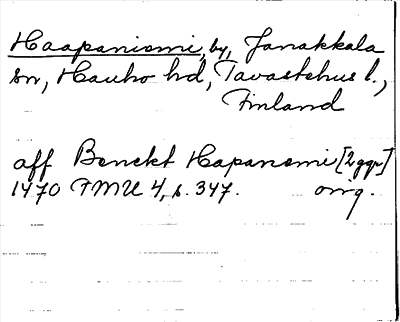 Haapaniemi, by, Janakkala
sn, Hauho hd, Tavastehus l.,
Finland
aff Benckt Hapanemi [2 ggr]
1470 FMU 4, s. 347. orig.